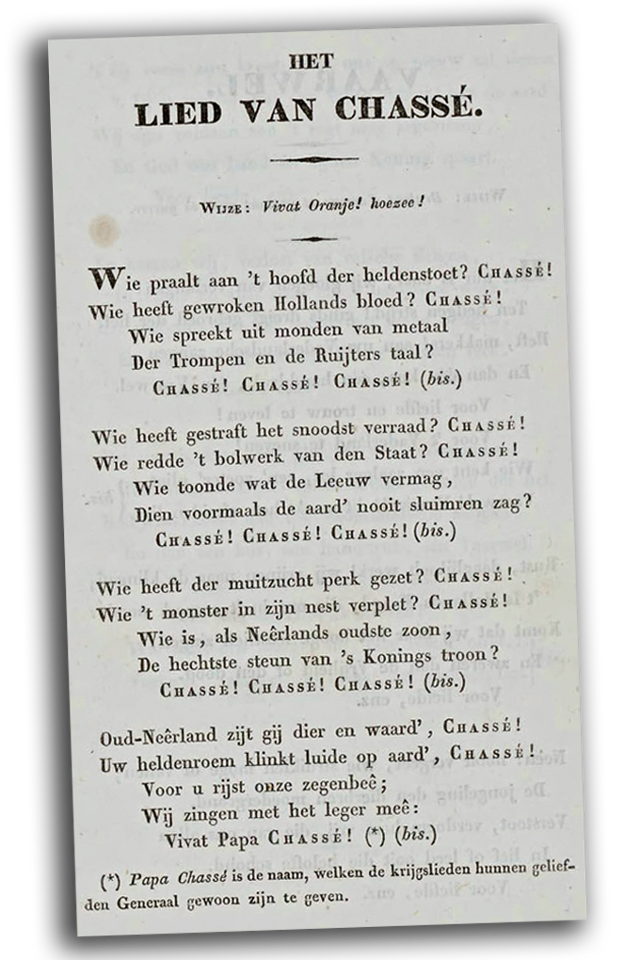 HET
LIED VAN CHASSÉ.
WIJZE: Vivat Oranje! hoezee!
Wie praalt aan 't hoofd der heldenstoet? CHASSÉ!
Wie heeft gewroken Hollands bloed? CHASSÉ!
Wie spreekt uit monden van metaal
Der Trompen en de Ruijters taal?
CHASSÉ! CHASSÉ! CHASSÉ! (bis.)
Wie heeft gestraft het snoodst verraad? CHASSÉ!
Wie redde 't bolwerk van den Staat? CHASSÉ!
Wie toonde wat de Leeuw vermag,
Dien voormaals de aard' nooit sluimren zag?
CHASSÉ! CHASSÉ! CHASSÉ! (bis.)
Wie heeft der muitzucht perk gezet? CHASSÉ!
Wie 't monster in zijn nest verplet? CHASSÉ!
Wie is, als Neêrlands oudste zoon,
De hechtste steun van 's Konings troon?
CHASSÉ! CHASSÉ! CHASSÉ! (bis.)
Oud-Neêrland zijt gij dier en waard', CHASSÉ!
Uw heldenroem klinkt luide op aard', CHASSÉ!
Voor u rijst onze zegenbeê;
Wij zingen met het leger meê:
Vivat Papa CHASSÉ! (*) (bis.)
(*) Papa Chassé is de naam, welken de krijgslieden hunnen gelief-
den Generaal gewoon zijn te geven.